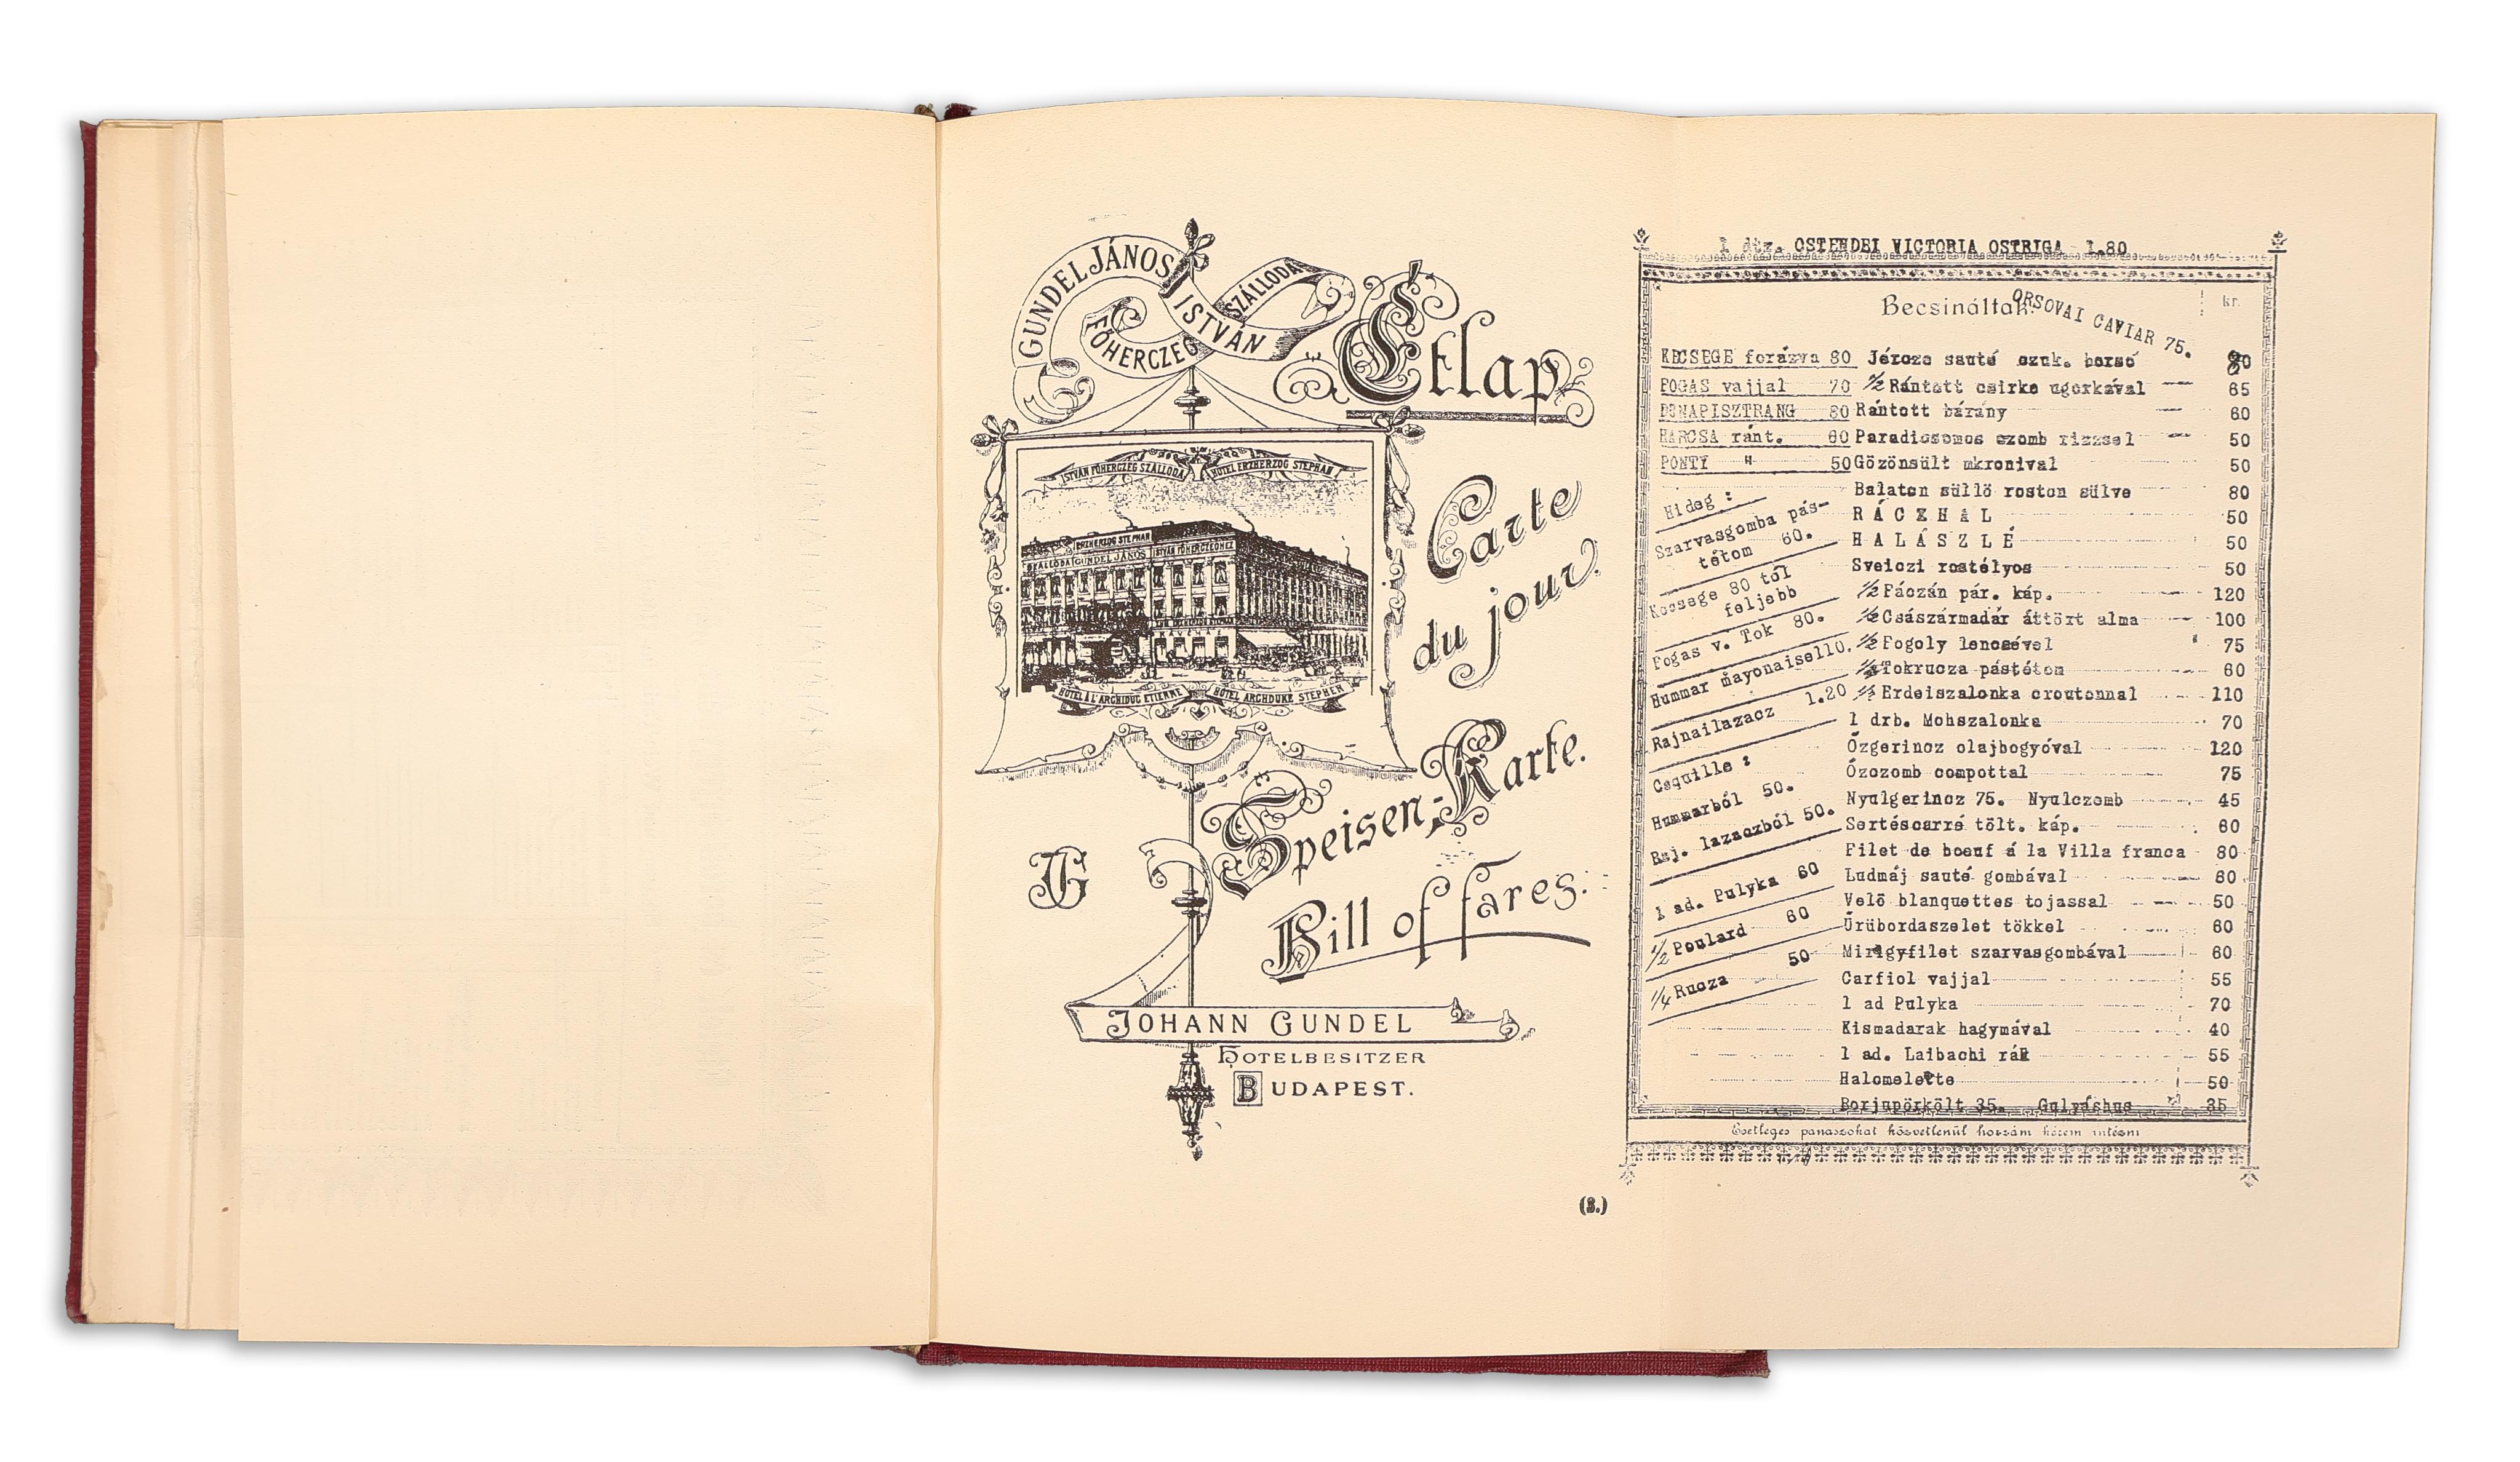 GUNDEL JÁNOS
FŐHERCZEG
ISTVÁN
SZÁLLODA
Étlap
ISTVÁN FŐHERCZEG SZÁLLODA
HOTEL ERZHERZOG STEPHAN
ERZHERZOG STEPHAN
SZÁLLODA GUNDEL JÁNOS
ISTVÁN FŐHERCZEGHEZ
KÁVÉHÁZ
HOTEL A L'ARCHIDUC ETIENNE
HOTEL ARCHDUKE STEPHEN
Carte
du jour.
Speisen-Karte.
JG
Bill of fares.
JOHANN GUNDEL
HOTELBESITZER
BUDAPEST.
(3.)
1 dtz. OSTENDEI VICTORIA OSTRIGA 1.80
Becsináltak.
kr.
ORSOVAI CAVIAR 75.
KECSEGE forázva 80
FOGAS vajjal 70
DUNAPISZTRANG 80
HARCSA ránt. 60
PONTY " 50
Hideg :
Szarvasgomba pás-
tétom 60.
Kecsege 80 tól
feljebb
Fogas v. Tok 80.
Hummar mayonaisello.
Rajnailazacz 1.20
Coquille :
Hummarból 50.
Raj. lazaczból 50.
1 ad. Pulyka 60
1/2 Poulard 60
1/4 Rucza 50
Jércze sauté czuk. borsó 80
1/2 Rántott csirke ugorkával 65
Rántott bárány 60
Paradicsomos czomb rizzsel 50
Gőzönsült mkronival 50
Balaton süllő roston sülve 80
RÁCZHAL 50
HALÁSZLÉ 50
Sveiczi rostélyos 50
1/2 Fáczán pár. káp. 120
1/2 Császármadár áttört alma 100
1/2 Fogoly lencsével 75
Tokrucza pástétom 60
1/2 Erdeiszalonka croutonnal 110
1 drb. Mohszalonka 70
Őzgerincz olajbogyóval 120
Őzczomb compottal 75
Nyulgerincz 75. Nyulczomb 45
Sertéscarré tölt. káp. 60
Filet de boeuf á la Villa franca 80
Ludmáj sauté gombával 80
Velő blanquettes tojassal 50
Ürübordaszelet tökkel 60
Mirigyfilet szarvasgombával 60
Carfiol vajjal 55
1 ad Pulyka 70
Kismadarak hagymával 40
1 ad. Laibachi rák 55
Halomelette 50
Borjupörkölt 35. Gulyáshus 35
Esetleges panaszokat közvetlenül hozzám kérem intézni